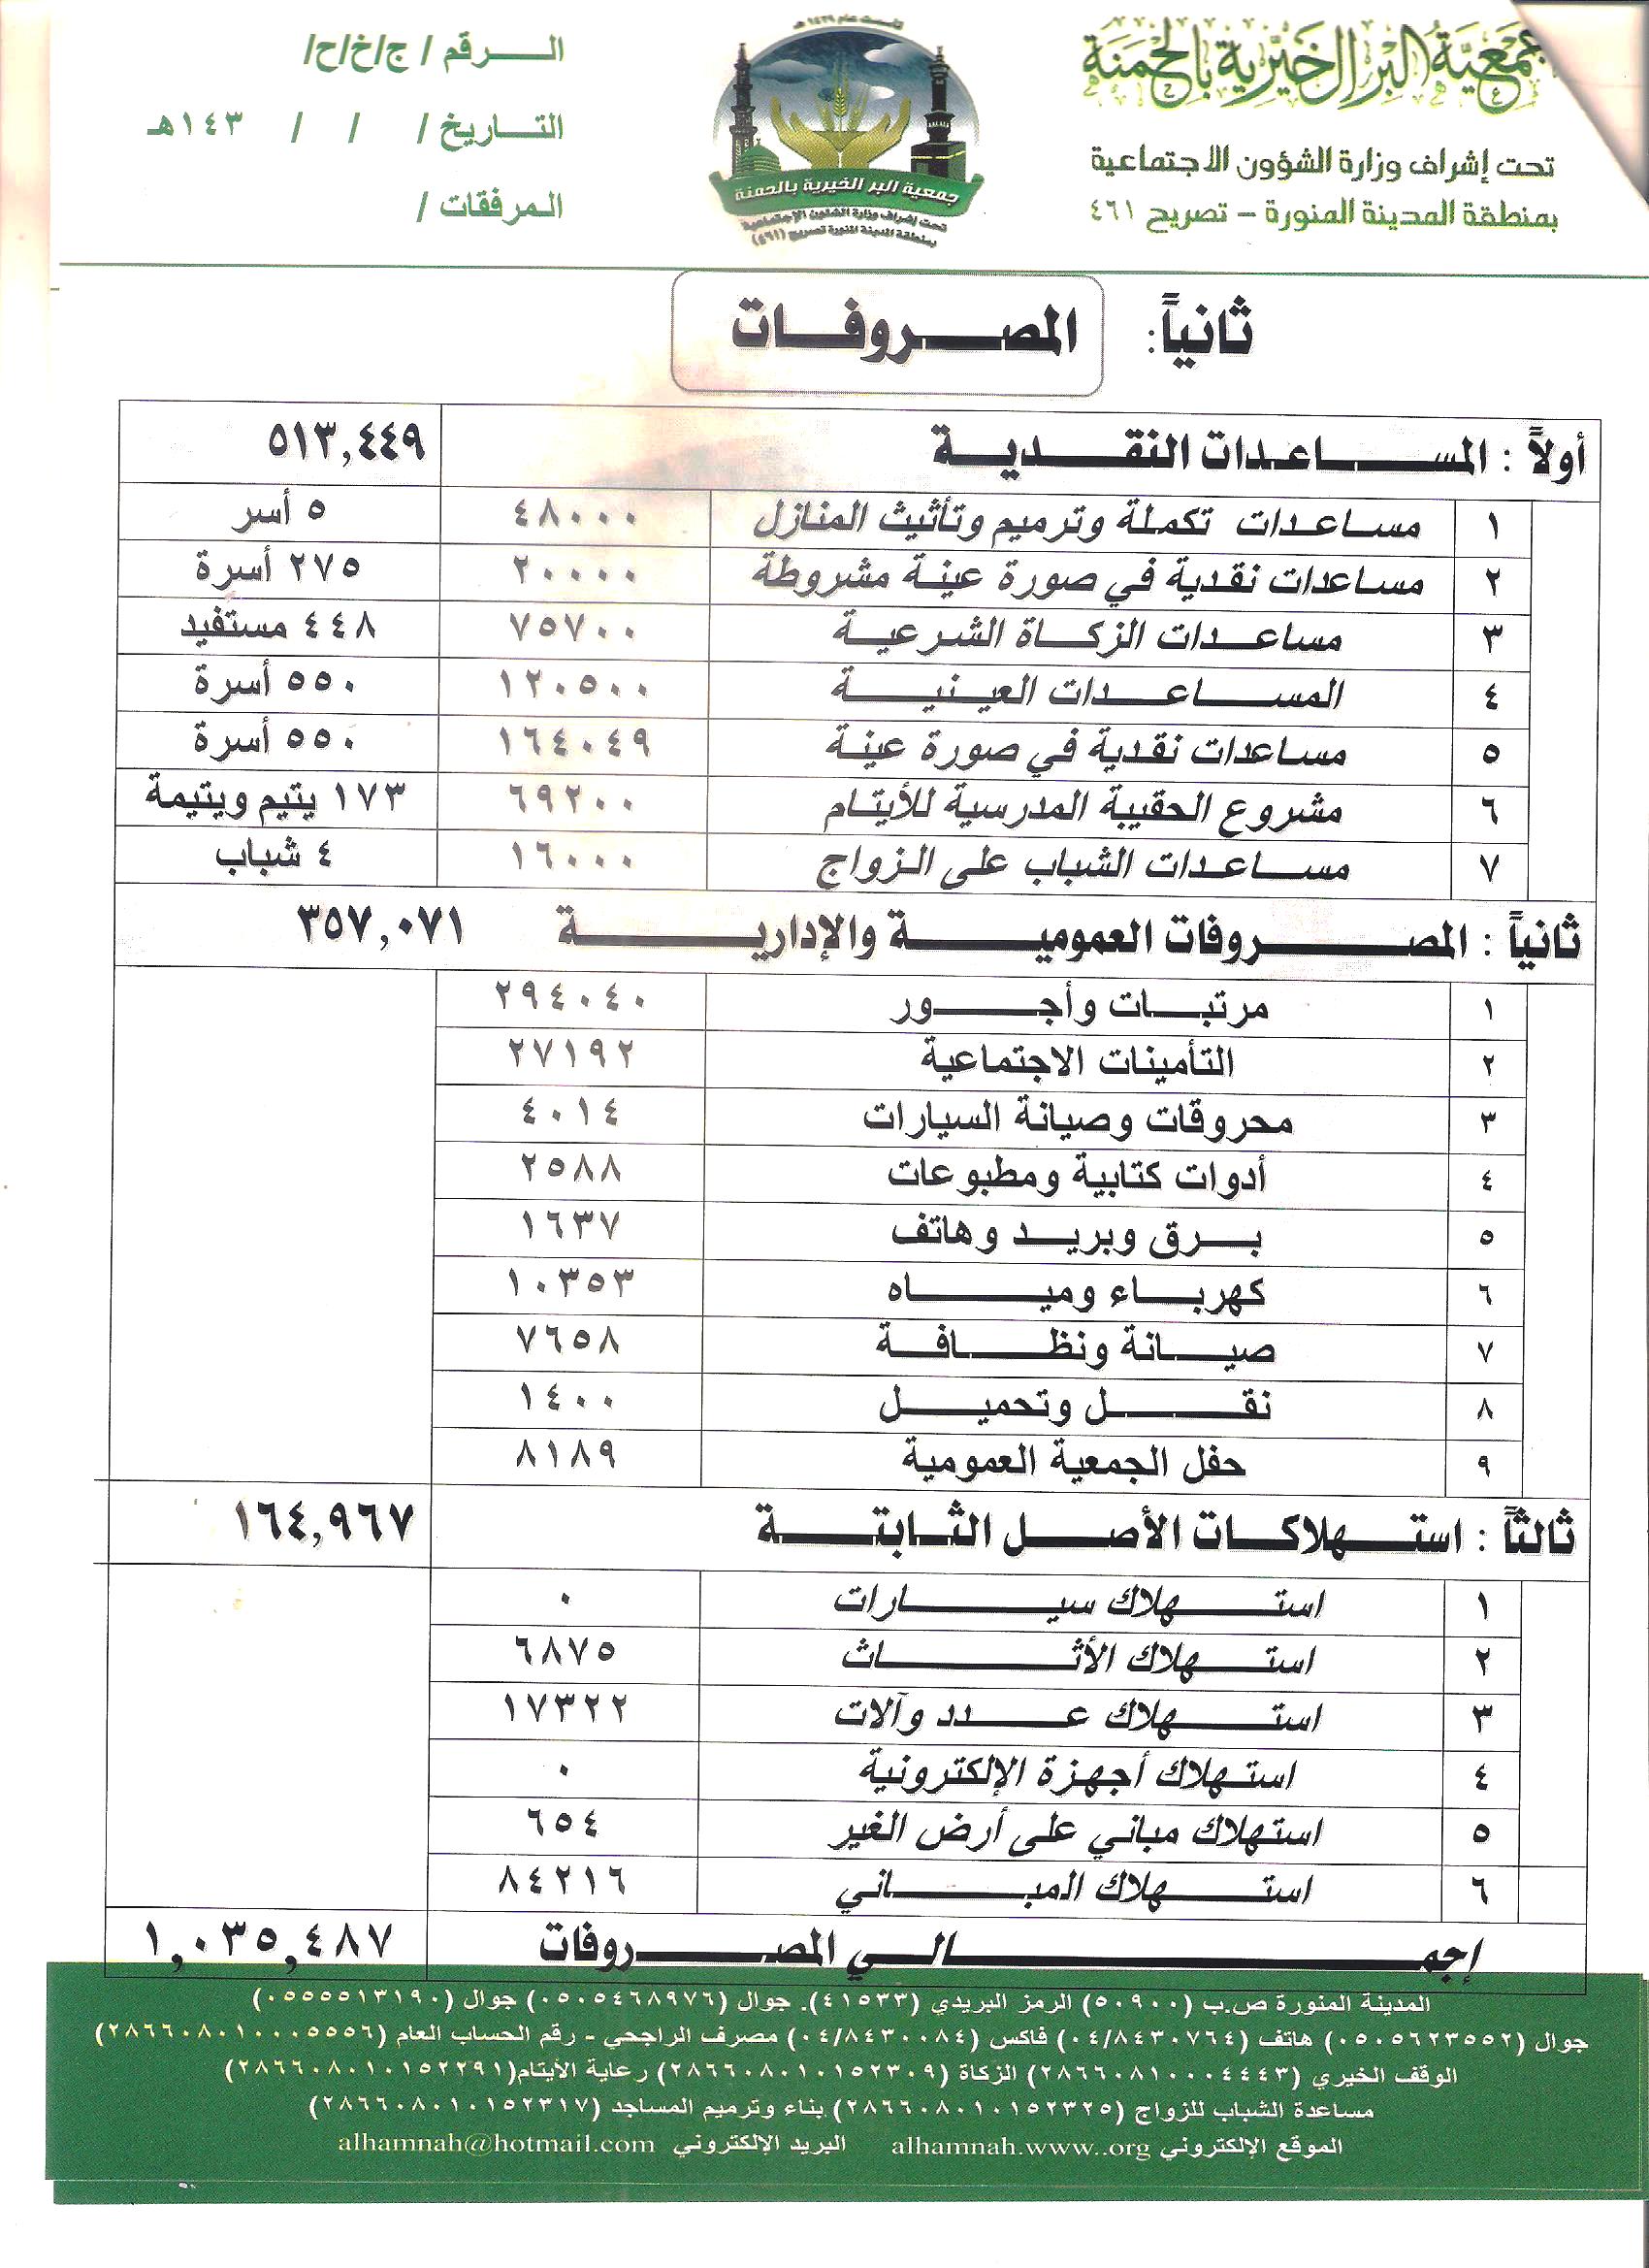 جمعية البر الخيرية بالحمنة
تحت إشراف وزارة الشؤون الاجتماعية
بمنطقة المدينة المنورة – تصريح ٤٦١
تأسست عام ١٤٢٩ هـ
جمعية البر الخيرية بالحمنة
تحت إشراف وزارة الشئون الاجتماعية
بمنطقة المدينة المنورة تصريح (٤٦١)
الرقم / ج/خ/ح/
التاريخ / / / ١٤٣هـ
المرفقات /
ثانياً: المصروفات
أولاً : المساعدات النقدية ٥١٣,٤٤٩
١ مساعدات تكملة وترميم وتأثيث المنازل ٤٨٠٠٠ ٥ أسر
٢ مساعدات نقدية في صورة عينة مشروطة ٢٠٠٠٠ ٢٧٥ أسرة
٣ مساعدات الزكاة الشرعية ٧٥٧٠٠ ٤٤٨ مستفيد
٤ المساعدات العينية ١٢٠٥٠٠ ٥٥٠ أسرة
٥ مساعدات نقدية في صورة عينة ١٦٤٠٤٩ ٥٥٠ أسرة
٦ مشروع الحقيبة المدرسية للأيتام ٦٩٢٠٠ ١٧٣ يتيم ويتيمة
٧ مساعدات الشباب على الزواج ١٦٠٠٠ ٤ شباب
ثانياً : المصروفات العمومية والإدارية ٣٥٧,٠٧١
١ مرتبات وأجور ٢٩٤٠٤٠
٢ التأمينات الاجتماعية ٢٧١٩٢
٣ محروقات وصيانة السيارات ٤٠١٤
٤ أدوات كتابية ومطبوعات ٢٥٨٨
٥ برق وبريد وهاتف ١٦٣٧
٦ كهرباء ومياه ١٠٣٥٣
٧ صيانة ونظافة ٧٦٥٨
٨ نقل وتحميل ١٤٠٠
٩ حفل الجمعية العمومية ٨١٨٩
ثالثاً : استهلاكات الأصل الثابتة ١٦٤,٩٦٧
١ استهلاك سيارات ٠
٢ استهلاك الأثاث ٦٨٧٥
٣ استهلاك عدد وآلات ١٧٣٢٢
٤ استهلاك أجهزة الإلكترونية ٠
٥ استهلاك مباني على أرض الغير ٦٥٤
٦ استهلاك المباني ٨٤٢١٦
إجمالي المصروفات ١,٠٣٥,٤٨٧
المدينة المنورة ص.ب (٥٠٩٠٠) الرمز البريدي (٤١٥٣٣). جوال (٠٥٠٥٤٦٨٩٧٦) جوال (٠٥٥٥٥١٣١٩٠)
جوال (٠٥٠٥٦٢٣٥٥٢) هاتف (٠٤/٨٤٣٠٧٦٤) فاكس (٠٤/٨٤٣٠٠٨٤) مصرف الراجحي - رقم الحساب العام (٢٨٦٦٠٨٠١٠٠٠٥٥٥٦)
الوقف الخيري (٢٨٦٦٠٨١٠٠٠٤٤٤٣) الزكاة (٢٨٦٦٠٨٠١٠١٥٢٣٠٩) رعاية الأيتام(٢٨٦٦٠٨٠١٠١٥٢٢٩١)
مساعدة الشباب للزواج (٢٨٦٦٠٨٠١٠١٥٢٣٢٥) بناء وترميم المساجد (٢٨٦٦٠٨٠١٠١٥٢٣١٧)
الموقع الإلكتروني alhamnah.www..org البريد الإلكتروني alhamnah@hotmail.com